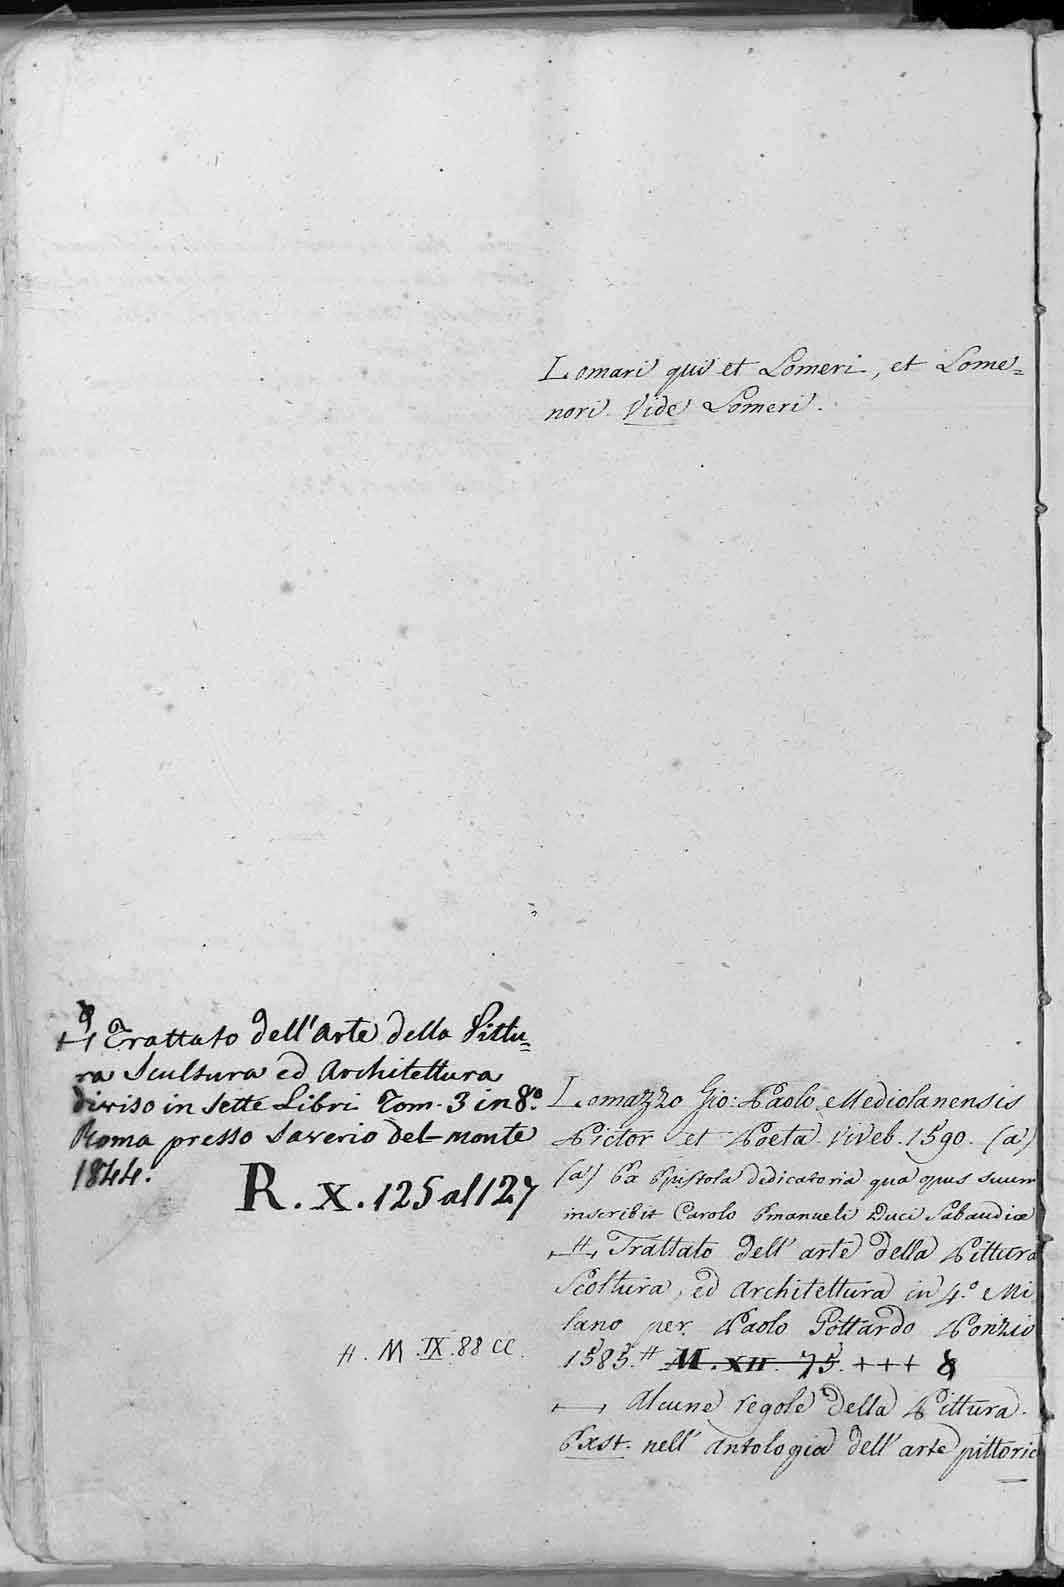 Lomari qui et Lomeri, et Lome=
nori. Vide Lomeri.
Trattato dell'Arte della Pittu=
ra Scultura ed Architettura
diviso in Sette Libri Tom. 3 in 8.º
Roma presso Saverio del-monte
1844.
R. X. 125 al 127
#. M. IX. 88 CC.
Lomazzo Gio: Paolo Mediolanensis
Pictor et Poeta. Viveb. 1590. (a)
(a) Ex Epistola dedicatoria qua opus suum
inscribit Carolo Emanueli Duci Sabaudiæ
# Trattato dell' arte della Pittura
Scoltura, ed Architettura in 4.º Mi
lano per Paolo Gottardo Ponzio
1585. # M. XII. 75. +++
Alcune regole della Pittura.
Exst. nell' Antologia dell' arte pittoric